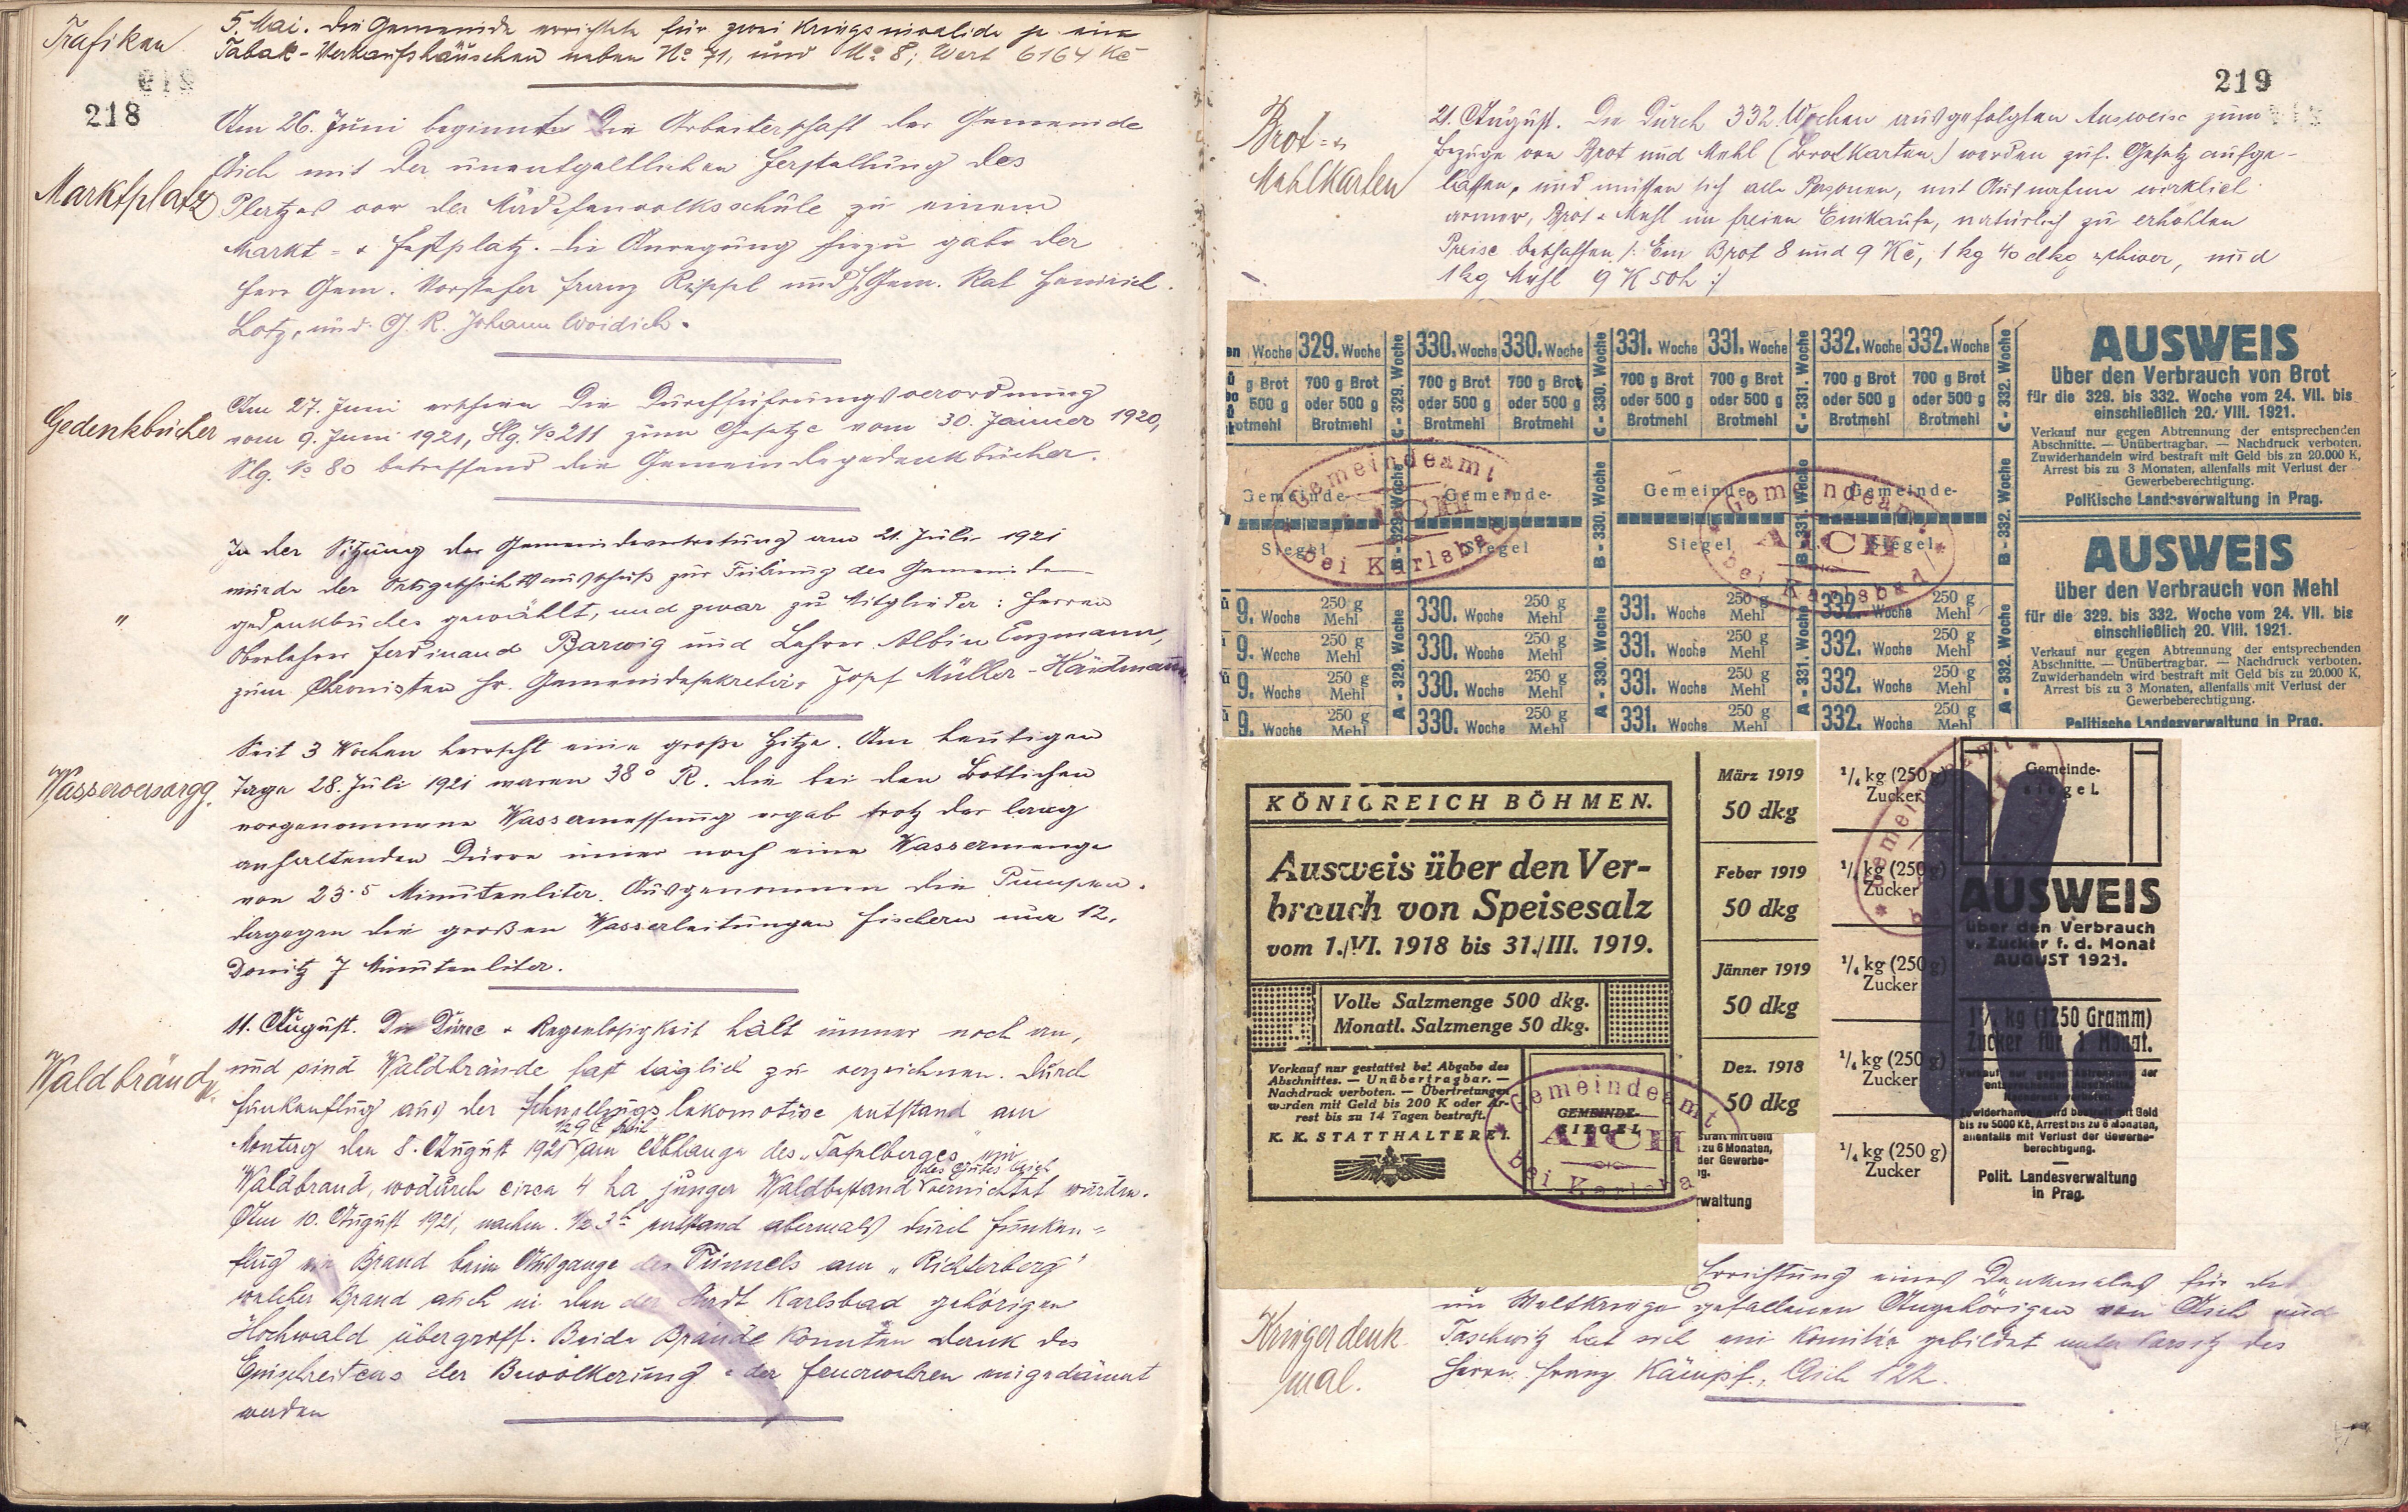 Trafiken
5. Mai. Die Gemeinde errichtete für zwei Kriegsinvalide je eine
Tabak-Verkaufshäuschen neben No 71, und No 8; Wert 6164 Kč
218
Am 26. Juni beginnt die Arbeiterschaft der Gemeinde
Aich mit der unentgeltlichen Herstellung des
Marktplatz
Platzes vor der Mädchenvolksschule zu einem
Markt- & Festplatz. Die Anregung hiezu gab der
Herr Gem. Vorsteher Franz Rippl und H. Gem. Rat Heinrich
Lotz, und G. R. Johann Woidich.
Gedenkbücher
Am 27. Juni erschien die Durchführungsverordnung
vom 9. Juni 1921, Slg. No 211 zum Gesetze vom 30. Jänner 1920,
Slg. No 80 betreffend die Gemeindegedenkbücher.
"
In der Sitzung der Gemeindevertretung am 21. Juli 1921
wurde der Ortsgeschichtsausschuß zur Führung des Gemeinde-
gedenkbuches gewählt, und zwar zu Mitglieder: Herren
Oberlehrer Ferdinand Barwig und Lehrer Albin Enzmann,
zum Chronisten Hr. Gemeindesekretär Josef Müller-Handmann
Wasserversorgg.
Seit 3 Wochen herrscht eine große Hitze. Am heutigen
Tage 28. Juli 1921 waren 38° R. Die bei den Bottichen
vorgenommene Wassermessung ergab trotz der lang
anhaltenden Dürre immer noch eine Wassermenge
von 23.5 Minutenliter. Ausgenommen die Pumpen.
dagegen die großen Wasserleitungen Fischern nur 12,
Donitz 7 Minutenliter.
Waldbrände
11. August. Die Dürre & Regenlosigkeit hält immer noch an,
und sind Waldbrände fast täglich zu verzeichnen. Durch
Funkenflug aus der Schnellzugslokomotive entstand am
Montag den 8. August 1921 am Abhange des "Tafelberges" ein
des Gutes Aich
Waldbrand, wodurch circa 4 ha junger Waldbestand vernichtet wurden.
Am 10. August 1921, nachm. ½3h entstand abermals durch Funken-
flug ein Brand beim Ausgange des Tunnels am "Richterberg"
welcher Brand auch in den der Stadt Karlsbad gehörigen
Hochwald übergriff. Beide Brände konnten dank des
Einschreitens der Bevölkerung & der Feuerwehren eingedämmt
werden
219
Brot- &
Mehlkarten
21. August. Die durch 332 Wochen ausgefolgten Ausweise zum
Bezuge von Brot und Mehl (Brotkarten) werden zuf. Gesetz aufge-
lassen, und müssen sich alle Personen, mit Ausnahme wirklich
armer, Brot & Mehl im freien Einkaufe, natürlich zu erhöhten
Preise beschaffen /: Ein Brot 8 und 9 Kč, 1 kg 40 dkg schwer, und
1 kg Mehl 9 K 50h :/
en Woche 329. Woche C - 329. Woche 330. Woche 330. Woche C - 330. Woche 331. Woche 331. Woche C - 331. Woche 332. Woche 332. Woche C - 332. Woche
g Brot 700 g Brot 700 g Brot 700 g Brot 700 g Brot 700 g Brot 700 g Brot 700 g Brot
500 g oder 500 g oder 500 g oder 500 g oder 500 g oder 500 g oder 500 g oder 500 g
otmehl Brotmehl Brotmehl Brotmehl Brotmehl Brotmehl Brotmehl Brotmehl
Gemeinde- Gemeinde- Gemeinde- Gemeinde-
Siegel Siegel Siegel Siegel
B - 329. Woche B - 330. Woche B - 331. Woche B - 332. Woche
Gemeindeamt AICH bei Karlsbad
Gemeindeamt AICH bei Karlsbad
9. Woche 250 g Mehl 330. Woche 250 g Mehl 331. Woche 250 g Mehl 332. Woche 250 g Mehl
9. Woche 250 g Mehl 330. Woche 250 g Mehl 331. Woche 250 g Mehl 332. Woche 250 g Mehl
9. Woche 250 g Mehl 330. Woche 250 g Mehl 331. Woche 250 g Mehl 332. Woche 250 g Mehl
9. Woche 250 g Mehl 330. Woche 250 g Mehl 331. Woche 250 g Mehl 332. Woche 250 g Mehl
A - 329. Woche A - 330. Woche A - 331. Woche A - 332. Woche
AUSWEIS
über den Verbrauch von Brot
für die 329. bis 332. Woche vom 24. VII. bis
einschließlich 20. VIII. 1921.
Verkauf nur gegen Abtrennung der entsprechenden
Abschnitte. — Unübertragbar. — Nachdruck verboten.
Zuwiderhandeln wird bestraft mit Geld bis zu 20.000 K,
Arrest bis zu 3 Monaten, allenfalls mit Verlust der
Gewerbeberechtigung.
Politische Landesverwaltung in Prag.
AUSWEIS
über den Verbrauch von Mehl
für die 329. bis 332. Woche vom 24. VII. bis
einschließlich 20. VIII. 1921.
Verkauf nur gegen Abtrennung der entsprechenden
Abschnitte. — Unübertragbar. — Nachdruck verboten.
Zuwiderhandeln wird bestraft mit Geld bis zu 20.000 K,
Arrest bis zu 3 Monaten, allenfalls mit Verlust der
Gewerbeberechtigung.
Politische Landesverwaltung in Prag.
KÖNIGREICH BÖHMEN.
Ausweis über den Ver-
brauch von Speisesalz
vom 1./VI. 1918 bis 31./III. 1919.
Volle Salzmenge 500 dkg.
Monatl. Salzmenge 50 dkg.
Verkauf nur gestattet bei Abgabe des
Abschnittes. — Unübertragbar. —
Nachdruck verboten. — Übertretungen
werden mit Geld bis 200 K oder Ar-
rest bis zu 14 Tagen bestraft.
K. K. STATTHALTEREI.
GEMEINDE-
SIEGEL
Gemeindeamt AICH bei Karlsba
März 1919
50 dkg
Feber 1919
50 dkg
Jänner 1919
50 dkg
Dez. 1918
50 dkg
straft mit Geld
zu 6 Monaten,
der Gewerbe-
g.
rwaltung
¼ kg (250 g)
Zucker
¼ kg (250 g)
Zucker
¼ kg (250 g)
Zucker
¼ kg (250 g)
Zucker
¼ kg (250 g)
Zucker
Gemeinde-
siegel
AUSWEIS
über den Verbrauch
v. Zucker f. d. Monat
AUGUST 1921.
1¼ kg (1250 Gramm)
Zucker für 1 Monat.
Zuwiderhandeln wird bestraft mit Geld
bis zu 5000 Kč, Arrest bis zu 6 Monaten,
allenfalls mit Verlust der Gewerbe-
berechtigung.
Polit. Landesverwaltung
in Prag.
Krieger denk-
mal.
Errichtung eines Denkmales für die
im Weltkriege gefallenen Angehörigen von Aich und
Taschwitz hat sich ein Komitée gebildet unter Vorsitz des
Herrn Franz Kämpf, Aich 122.